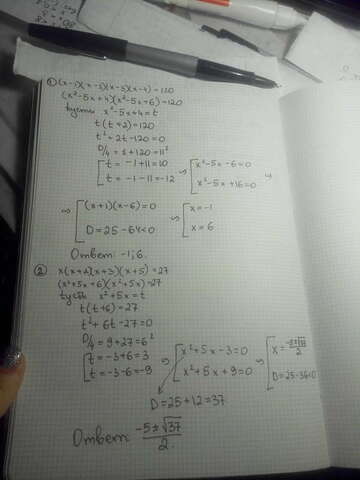 ① (x-1)(x-2)(x-3)(x-4)=120
(x²-5x+4)(x²-5x+6)=120
Пусть x²-5x+4=t
t(t+2)=120
t²+2t-120=0
D/4=1+120=11²
[t=-1+11=10 ⇒ [x²-5x-6=0
[t=-1-11=-12 [x²-5x+16=0 ⇒
⇒ [(x+1)(x-6)=0 ⇒ [x=-1
[D=25-64<0 [x=6
Ответ: -1;6.
② x(x+2)(x+3)(x+5)=27
(x²+5x+6)(x²+5x)=27
Пусть x²+5x=t
t(t+6)=27
t²+6t-27=0
D/4=9+27=6²
[t=-3+6=3 ⇒ [x²+5x-3=0 ⇒ [x=(-5±√37)/2
[t=-3-6=-9 [x²+5x+9=0 [D=25-36<0
D=25+12=37
Ответ: (-5±√37)/2.